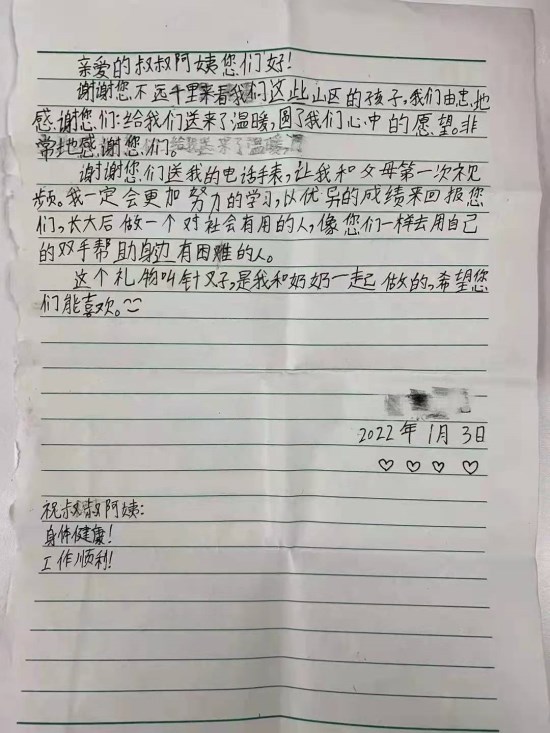 亲爱的叔叔阿姨您们好!
谢谢您不远千里来看我们这些山区的孩子,我们由忠地
感谢您们:给我们送来了温暖,圆了我们心中的愿望。非
常地感谢您们。
谢谢您们送我的电话手表,让我和父母第一次视
频。我一定会更加努力的学习,以优异的成绩来回报您
们,长大后做一个对社会有用的人,像您们一样去用自己
的双手帮助身边有困难的人。
这个礼物叫针叉子,是我和奶奶一起做的,希望您
们能喜欢。
2022年1月3日
祝叔叔阿姨:
身体健康!
工作顺利!